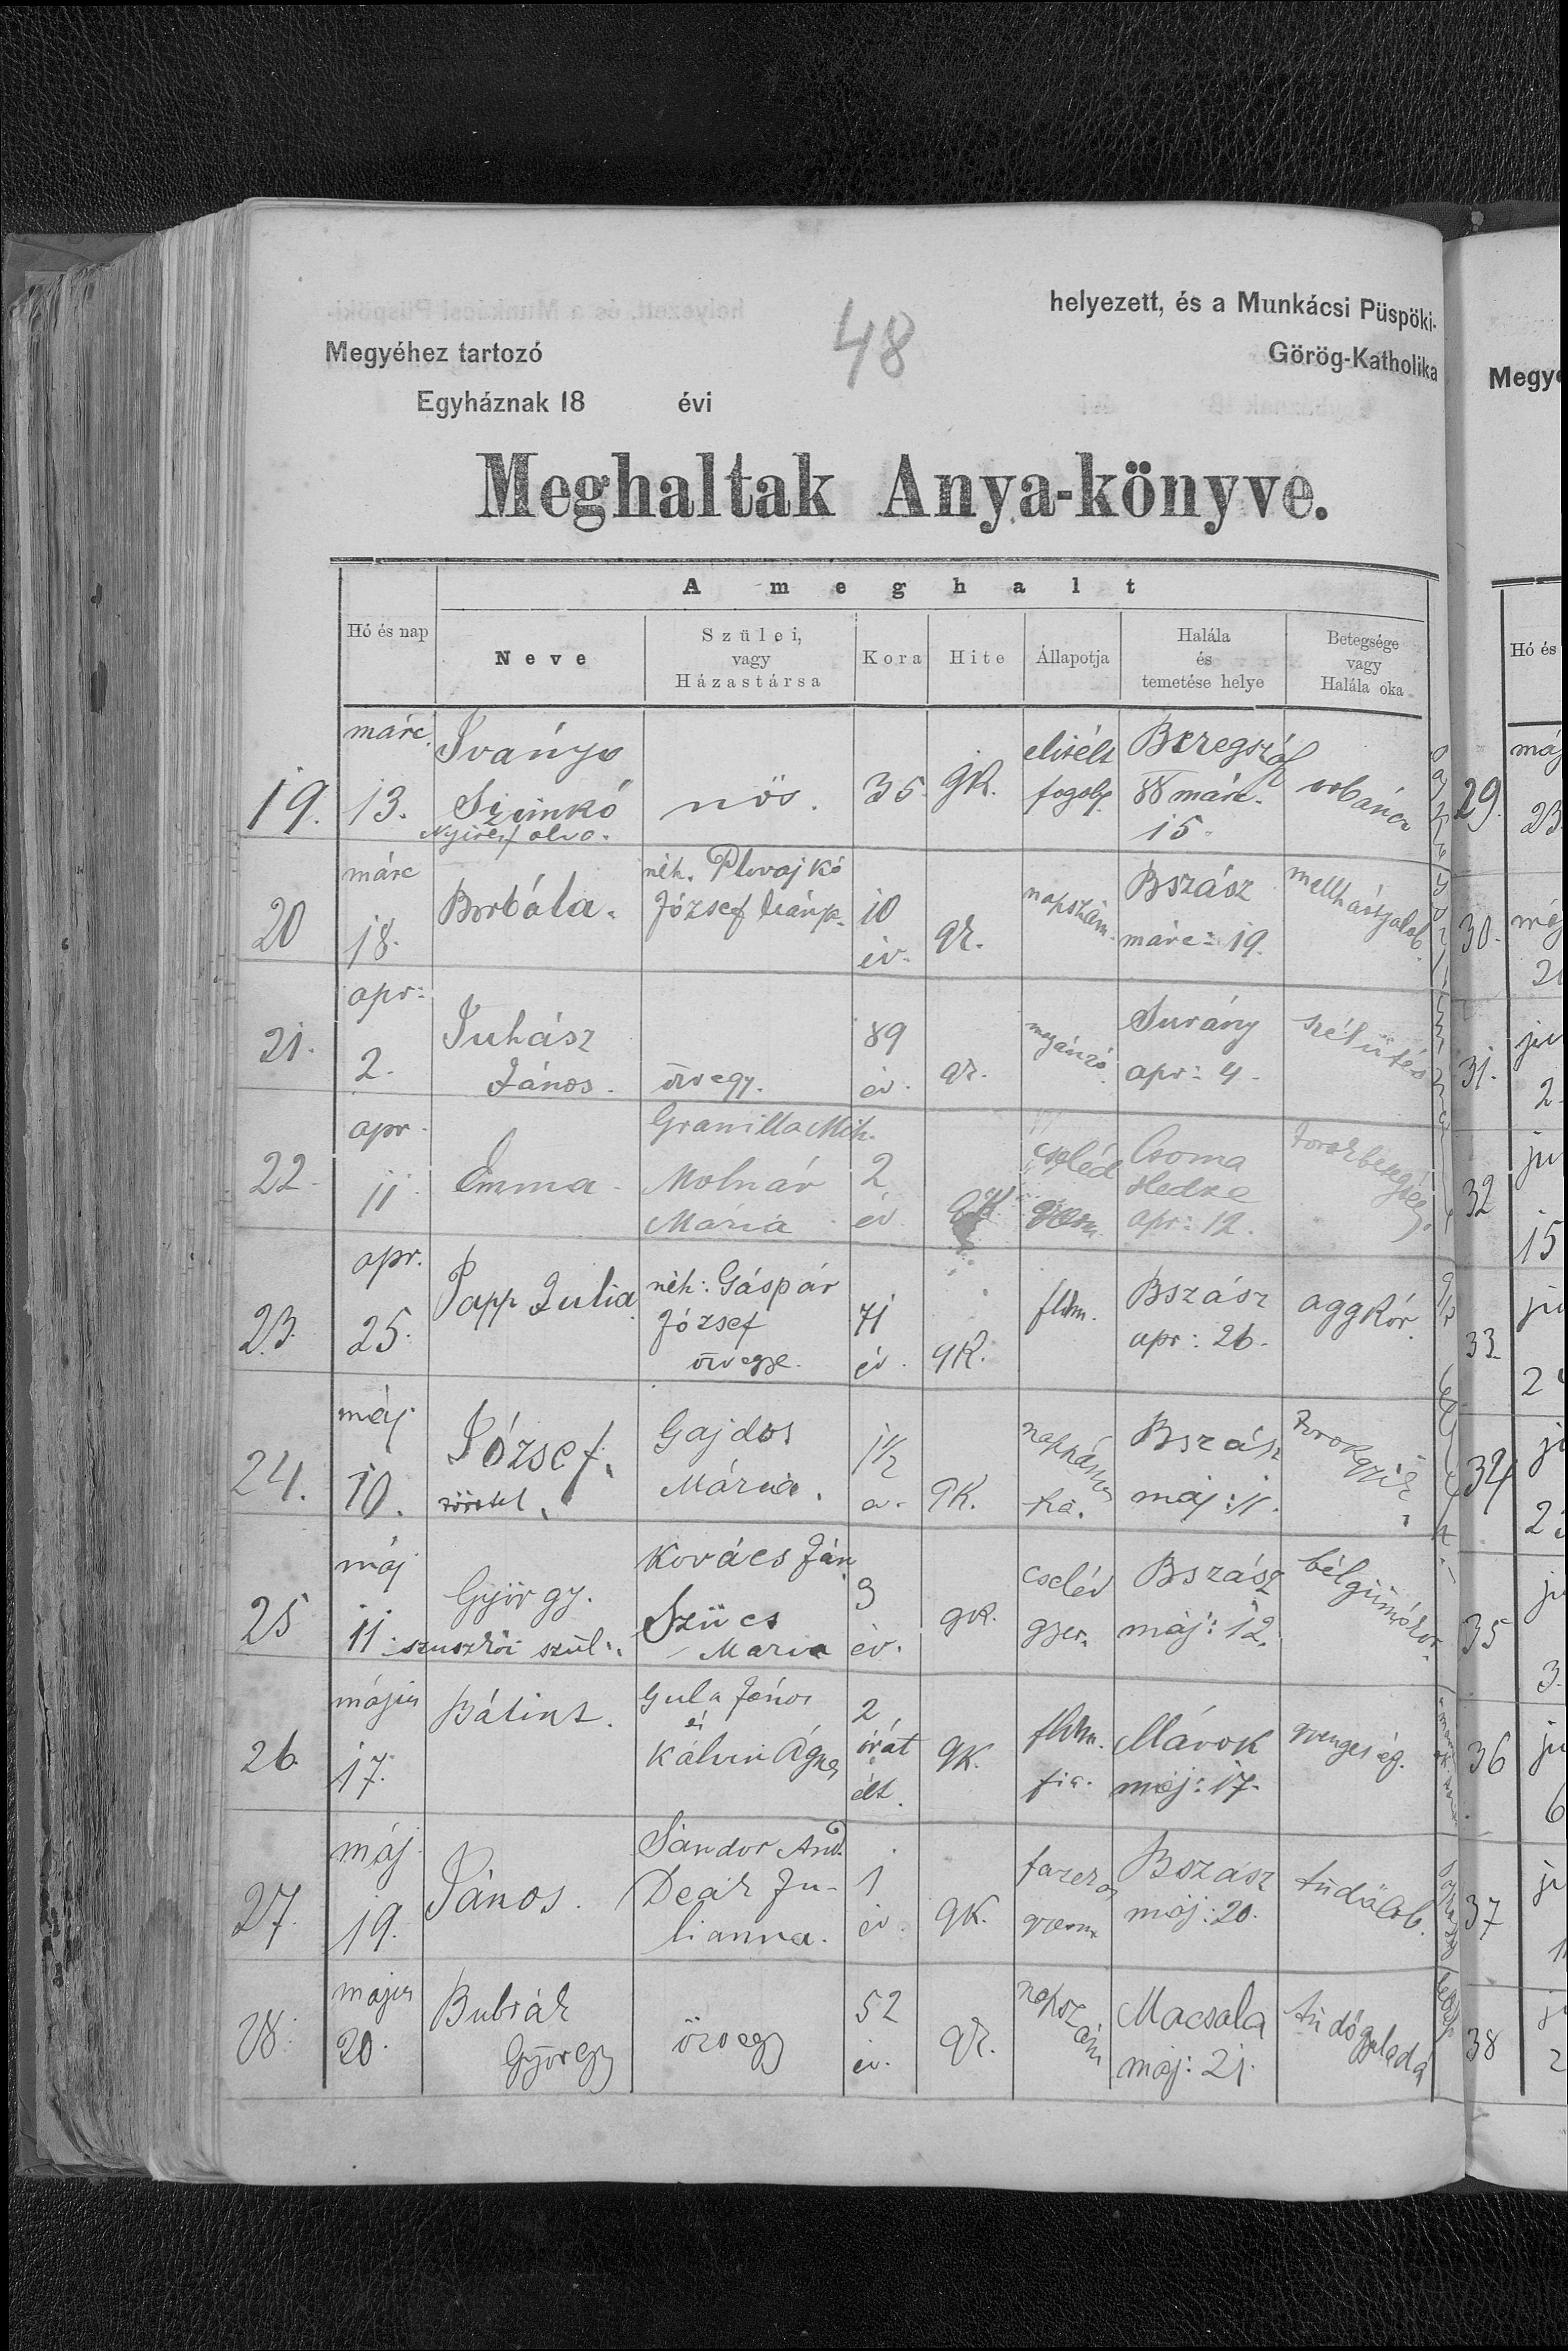 helyezett, és a Munkácsi Püspöki-
Megyéhez tartozó 48 Görög-Katholika
Egyháznak 18 évi
Meghaltak Anya-könyve.
A meghalt
Hó és nap
Neve
Szülei,
vagy
Házastársa
Kora
Hite
Állapotja
Halála
és
temetése helye
Betegsége
vagy
Halála oka
19.
márc.
13.
Iványo
Szimkó
nős.
35.
gk.
elitélt
fogoly
Beregszász
márc.
15.
orbáncz
20
márc
18.
Borbála.
néh. Plovajkó
József leánya.
10
év.
gk.
napszám.
Bszász
márc: 19.
mellhártyalob.
21.
apr:
2.
Juhász
János.
özvegy.
89
év.
gk.
magánzó
Surány
apr: 4.
szélütés
22.
apr.
11
Emma.
Granilla Mih.
Molnár
Mária
2
év.
gk
cseléd
gyerm
Csoma
apr: 12.
torokbetegség.
23.
apr.
25.
Papp Julia.
néh: Gáspár
József
özvegye.
71
év.
gk.
fldm.
Bszász
apr: 26.
aggkór.
24.
máj
10.
József.
Gajdos
Mária.
1 1/2
gk.
fia.
Bszász
máj: 11.
torokgyík.
25
máj
11.
György.
szuszkói szül:.
Kovács Ján
Szücs
Maria
3
év.
gk.
cseléd
gyer.
Bszász
máj: 12.
bélgümőkór.
26.
május
17.
Bálint.
Gula János
és
Kálvin Ágnes
2
órát
élt.
gk.
fldm.
fia.
Márok
máj: 17.
gyengeség.
27.
máj.
19.
János.
Sándor And.
Deák Ju-
lianna.
1
év.
gk.
fazekas
gyerm
Bszász
máj: 20.
tüdőlob.
28.
május
20.
Bubrák
György
özvegy
52
év.
gk.
napsz
ám
Macsala
máj: 21.
Megye
Hó és
29.
máj
23
30.
máj
31.
2.
32
15
33.
2
34
2
35
3.
36
6
37
1
38
2